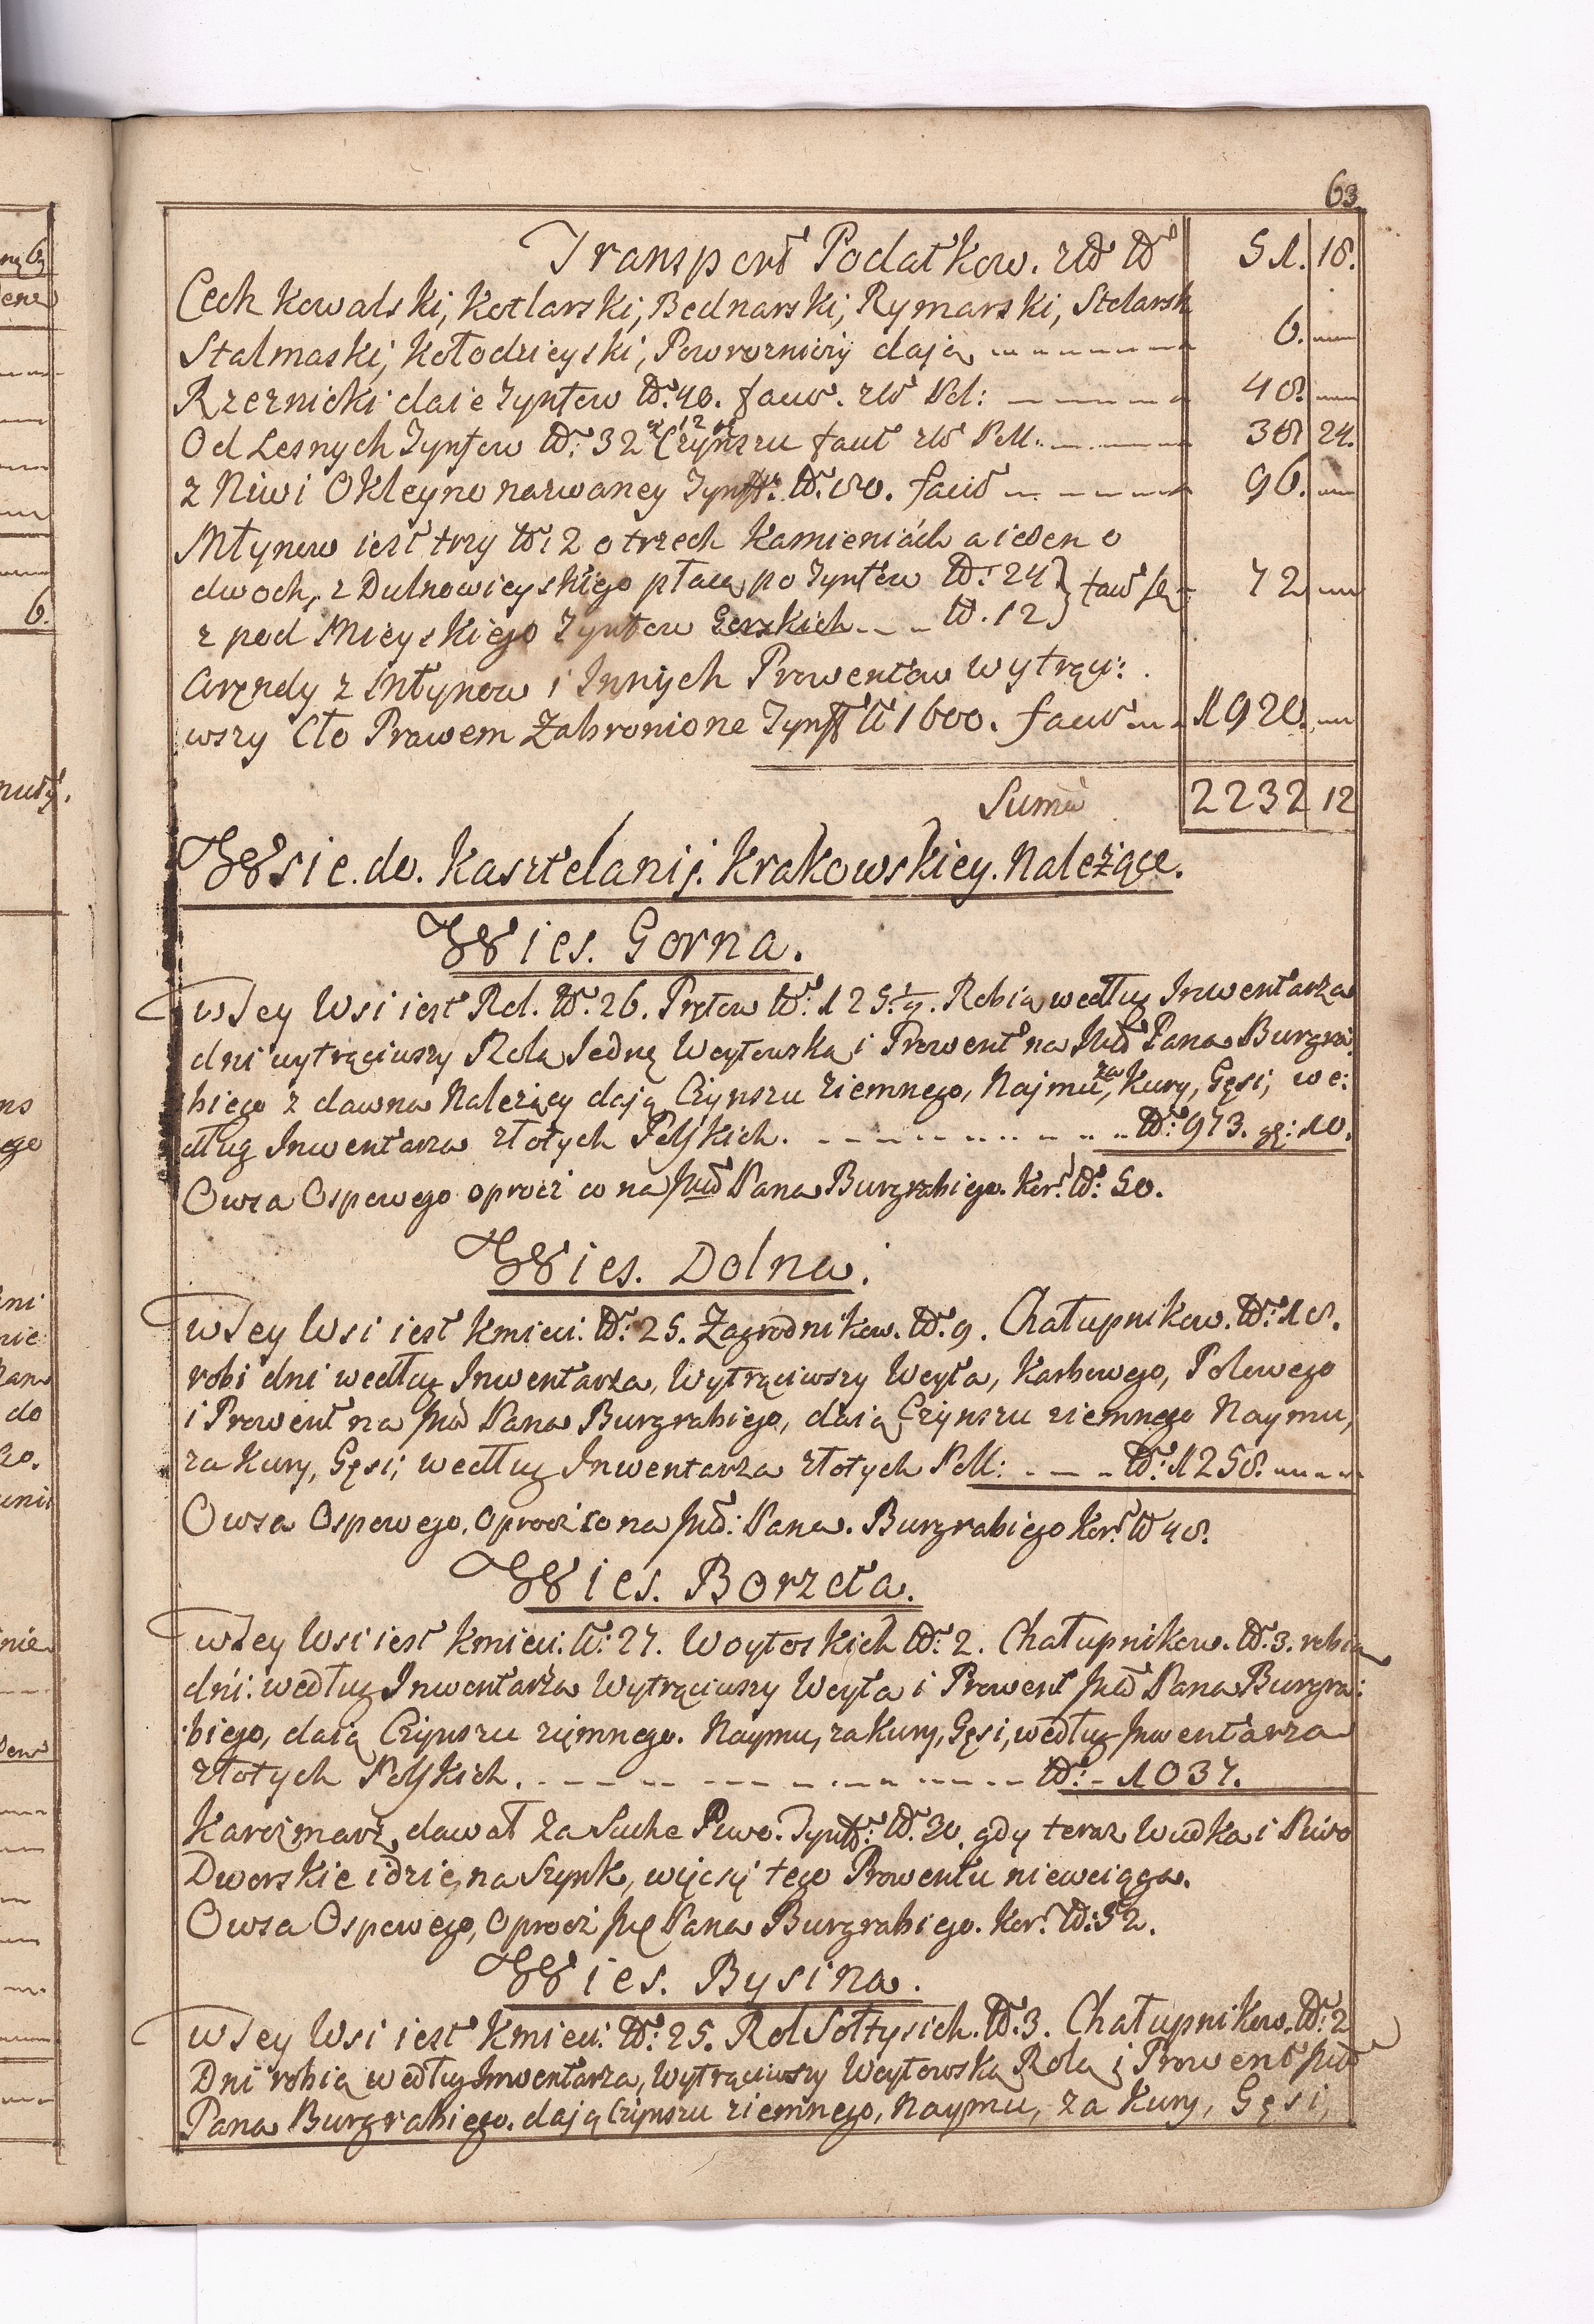 63.
Transport Podatkow. zł Nr 51. 18.
Cech Kowalski, Kotlarski, Bednarski, Rymarski, Stolarsk
Stalmaski, Kołodzieyski, Powroznicy dają 6.
Rzeznicki daie Tynfow Nr. 40. facit. zł Pol: 48.
Od Lesnych Tynfow Nr. 32 gr 12 Czynszu facit zł Poll. 38 24.
z Niwi Okleyne nazwaney Tynff: Nr. 80. facit 96.
Młynow iest trzy Nr: 2 o trzech Kamieniach a ieden o
dwoch, z Dulnowieyskiego płacą po Tynfow Nr. 24 } facit 72
z pod Mieyskiego Tynfow Gorzkich Nr. 12 }
Arendy z Młynow i Innych Prowentow wytrąci:
wszy Cło Prawem Zabronione Tynff Nr 1600. facit 1920.
Suma 2232 12
Wsie. do. Kasztelanij. Krakowskiey. Należące.
Wies. Gorna.
w Tey Wsi iest Rol. Nr. 26. Prętow Nr. 125.½. Robią według Inwentarza
dni wytrąciwszy Rolą Jedną Woytowską i Prowent na Pana Burgra:
biego z dawna Należący dają Czynszu ziemnego, Najmu, za Kury, Gęsi, we:
dług Inwentarza złotych Polskich. Nr. 973. gr: 10.
Owsa Ospowego oprocz co na Pana Burgrabiego. Kor. Nr: 50.
Wies. Dolna.
w Tey Wsi iest Kmieci. Nr: 25. Zagrodnikow. Nr. 9. Chałupnikow. Nr: 18.
robi dni według Inwentarza, Wytrąciwszy Woyta, Karbowego, Polowego
i Prowent na Pana Burgrabiego, daią Czynszu ziemnego Naymu,
za Kury, Gęsi, według Inwentarza złotych Poll: Nr: 1258.
Owsa Ospowego, Oprocz co na Pana. Burgrabiego Kor. Nr 48.
Wies. Borzeta.
w Tey Wsi iest Kmieci. Nr: 27. Woytoskich Nr: 2. Chałupnikow. Nr. 3. robią
dni: według Inwentarza Wytrąciwszy Woyta i Prowent Pana Burgra:
biego, daią Czynszu ziemnego. Naymu, za Kury, Gęsi, według Inwentarza
złotych Polskich. Nr: 1037.
Karczmarz dawał za Suche Piwo. Tynff: Nr. 30. gdy teraz Wudka i Piwo
Dworskie idzie na Szynk, więc się tego Prowentu nie wciąga.
Owsa Ospowego, Oprocz Pana Burgrabiego. Kor. Nr: 52.
Wies. Bysina.
w Tey Wsi iest Kmieci. Nr: 25. Rol Sołtysich. Nr. 3. Chałupnikow. Nr: 2
Dni robią według Inwentarza, Wytrąciwszy Woytowską Rolą i Prowent
Pana Burgrabiego. dają Czynszu ziemnego, Naymu, za Kury, Gęsi,